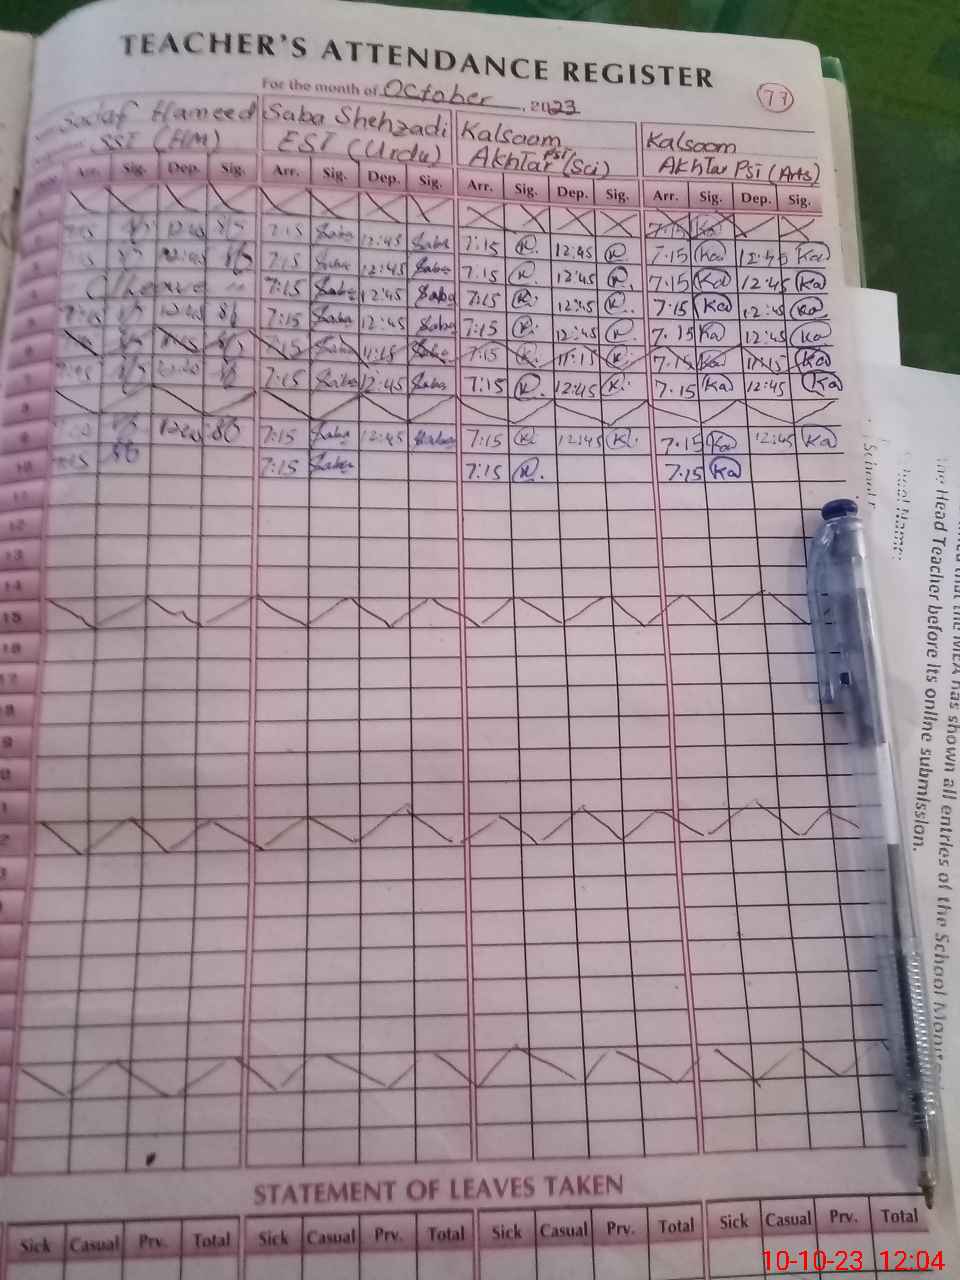 TEACHER'S ATTENDANCE REGISTER
For the month of October, 2023
77
Sadaf Hameed Saba Shehzadi Kalsoom Kalsoom
SST (HM) EST (Urdu) Akhtar PST (Sci) Akhtar PST (Arts)
Arr. Sig. Dep. Sig. Arr. Sig. Dep. Sig. Arr. Sig. Dep. Sig. Arr. Sig. Dep. Sig.
7:15 Ka
7:15 Saba 12:45 Saba 7:15 K. 12:45 K. 7.15 Ka 12:45 Ka
7:15 Saba 12:45 Saba 7:15 K. 12:45 K. 7.15 Ka 12:45 Ka
C/leave 7:15 Saba 12:45 Saba 7:15 K. 12:45 K. 7.15 Ka 12:45 Ka
7:15 Saba 12:45 Saba 7:15 K. 12:45 K. 7.15 Ka 12:45 Ka
7:15 Saba 11:15 Saba 7:15 K. 11:15 K. 7.15 Ka 11:15 Ka
7:15 Saba 12:45 Saba 7:15 K. 12:45 K. 7.15 Ka 12:45 Ka
7:15 Saba 12:45 7:15 K. 12:45 K. 7.15 Ka 12:45 Ka
10 7:15 Saba 7:15 K. 7.15 Ka
11
12
13
14
15
16
STATEMENT OF LEAVES TAKEN
Sick Casual Prv. Total Sick Casual Prv. Total Sick Casual Prv. Total Sick Casual Prv. Total
School Name:
that the MEA has shown all entries of the School
the Head Teacher before its online submission.
10-10-23 12:04